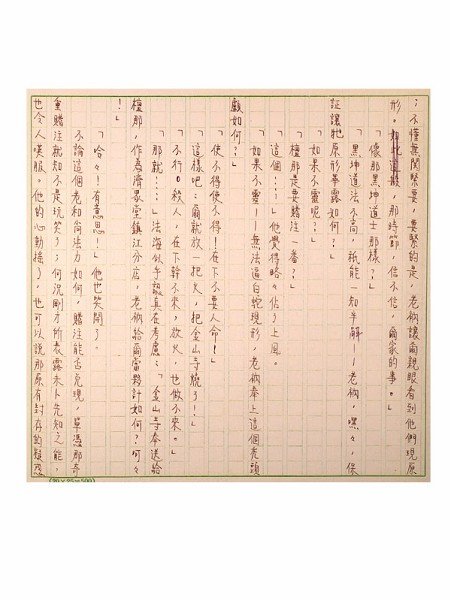 ；不懂無関緊要，要緊的是，老衲讓爾親眼看到他們現原
形。如此這般，那時節，信不信，爾家的事。」
「像那黑坤道士那樣？」
「黑坤道法不高，祇能一知半解——老衲，嘿々，保
証讓牠原形畢露如何？」
「如果不靈呢？」
「檀那是要賭注一番？」
「這個……」他覺得略々佔了上風。
「如果不靈——無法逼白蛇現形，老衲奉上這個禿頭
顱如何？」
「使不得使不得！在下不要人命！」
「這樣吧：爾就放一把火，把金山寺燒了！」
「不行。殺人，在下幹不來，放火，也做不來。」
「那就……」法海似乎認真在考慮：「金山寺奉送給
檀那，作為濟眾堂鎮江分店，老衲給爾當夥計如何？呵々
！」
「哈々！有意思！」他也笑開了。
不論這個老和尚法力如何，賭注能否兌現，單憑那奇
重賭注就知不是玩笑了；何況剛才所表露未卜先知之能，
也令人嘆服。他的心動搖了，也可以說那原有封存的疑惑
(20×25=500)